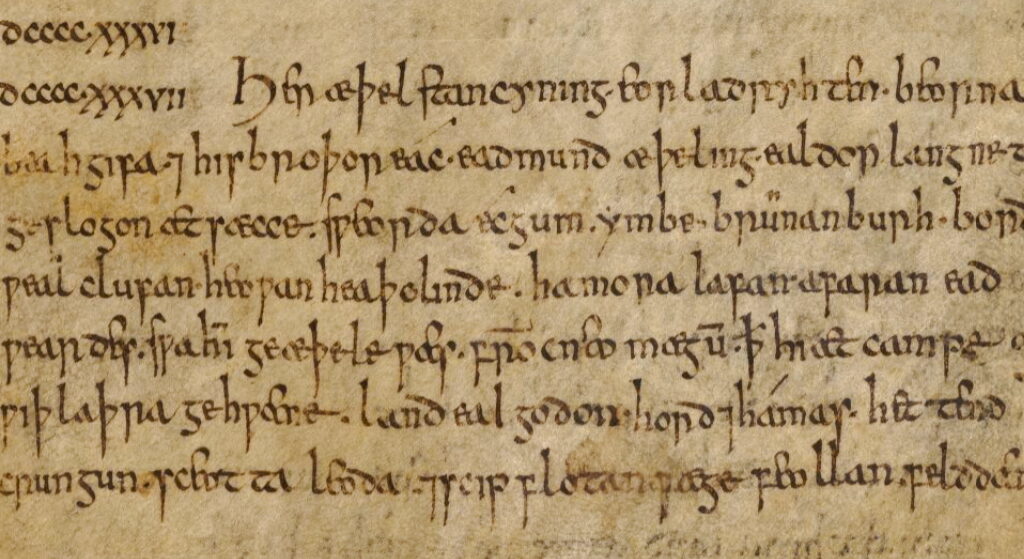 dcccc.xxxvi
dcccc.xxxvii Her æþelstan cyning. eorla dryhten. beorna
beahgifa. ⁊ his broþor eac. eadmund æþeling. ealdor langne t
geslogon æt sæcce. sƿeorda ecgum. ymbe. brunanburh. bord
ƿeal clufan. heoƿan heaþolinde. hamora lafan. afaran ead
ƿeardes. sƿa hī geæþele ƿæs. frō cneo mægū. ꝥ hi æt campe o
ƿiþ laþra gehƿæne. land ealgodon. hord ⁊ hámas. hettend
crungun. sceotta leoda. ⁊ scip flotan fæge feollan. feld dæn